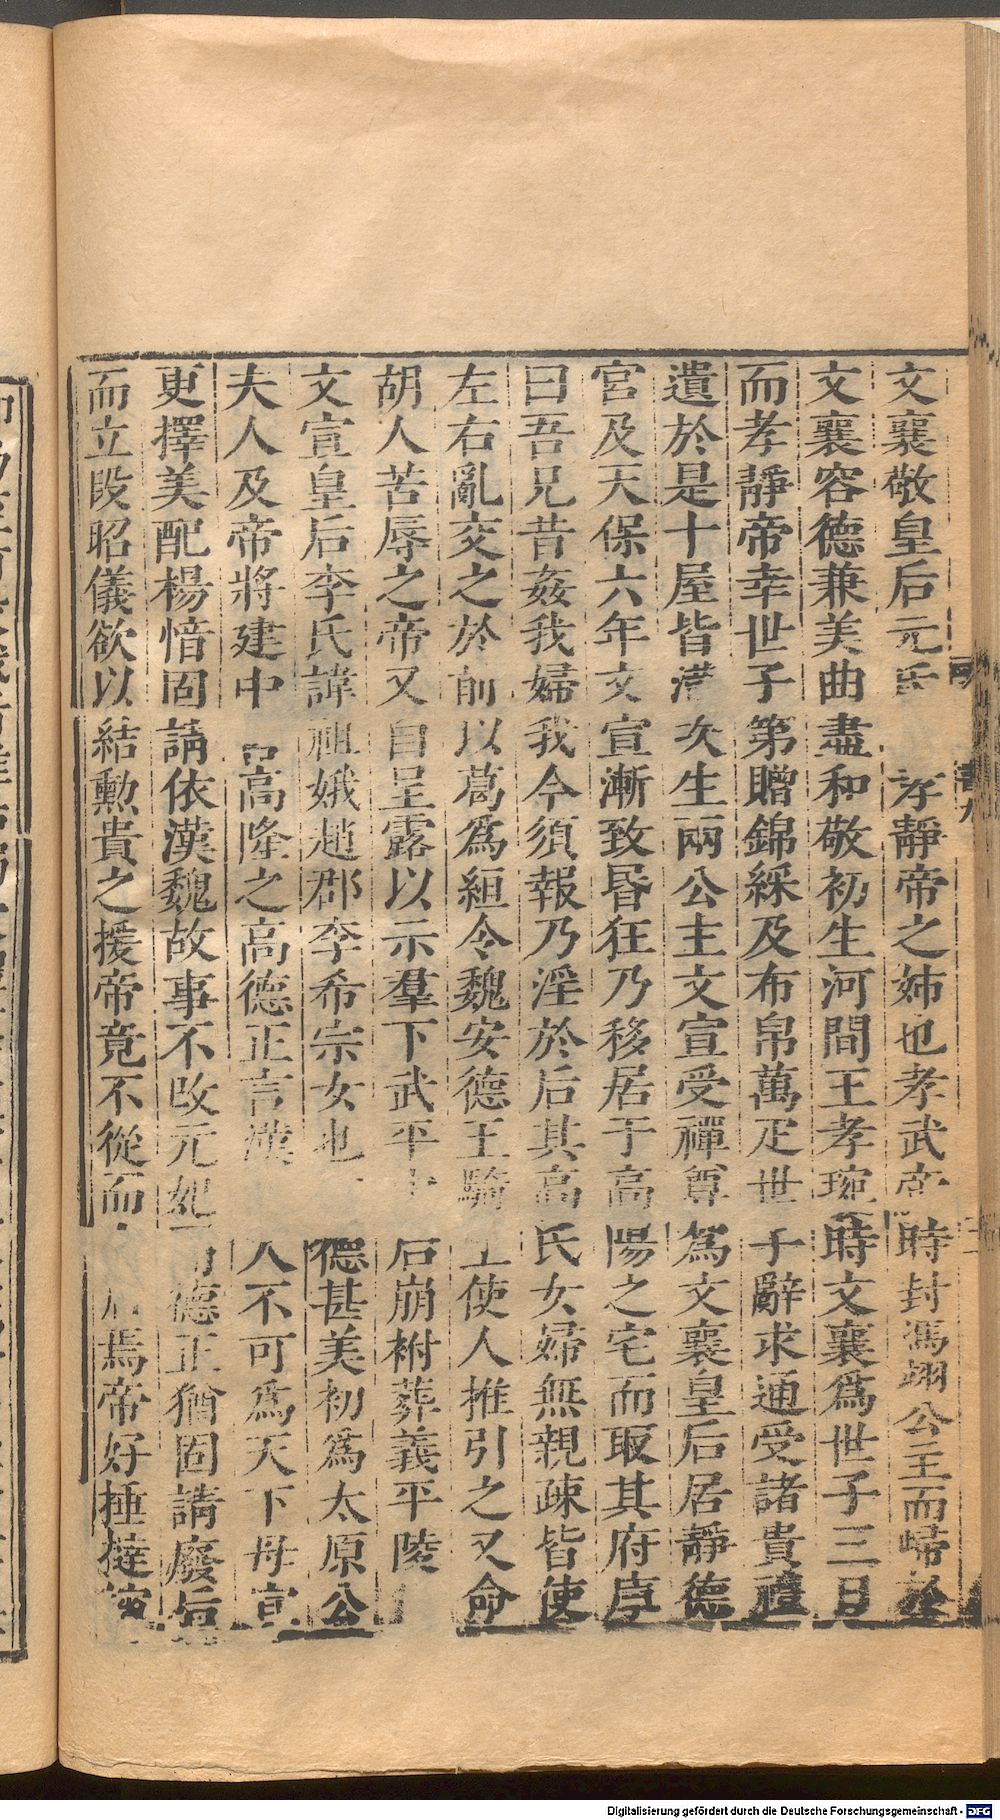 文襄敬皇后元氏孝靜帝之姊也孝武帝時封馮翊公主而歸於
文襄容德兼美曲盡和敬初生河間王孝琬時文襄爲世子三日
而孝靜帝幸世子第贈錦綵及布帛萬疋世子辭求通受諸貴禮
遺於是十屋皆滿次生兩公主文宣受禪尊爲文襄皇后居靜德
宮及天保六年文宣漸致昏狂乃移居于高陽之宅而取其府庫
曰吾兄昔姦我婦我今須報乃淫於后其高氏女婦無親疎皆使
左右亂交之於前以葛爲絙令魏安德王騎上使人推引之又命
胡人苦辱之帝又自呈露以示羣下武平中后崩祔葬義平陵
文宣皇后李氏諱祖娥趙郡李希宗女也德甚美初爲太原公
夫人及帝將建中宮高隆之高德正言漢人不可爲天下母宜
更擇美配楊愔固請依漢魏故事不改元妃而德正猶固請廢后
而立段昭儀欲以結勳貴之援帝竟不從而后焉帝好捶撻
Digitalisierung gefördert durch die Deutsche Forschungsgemeinschaft - DFG